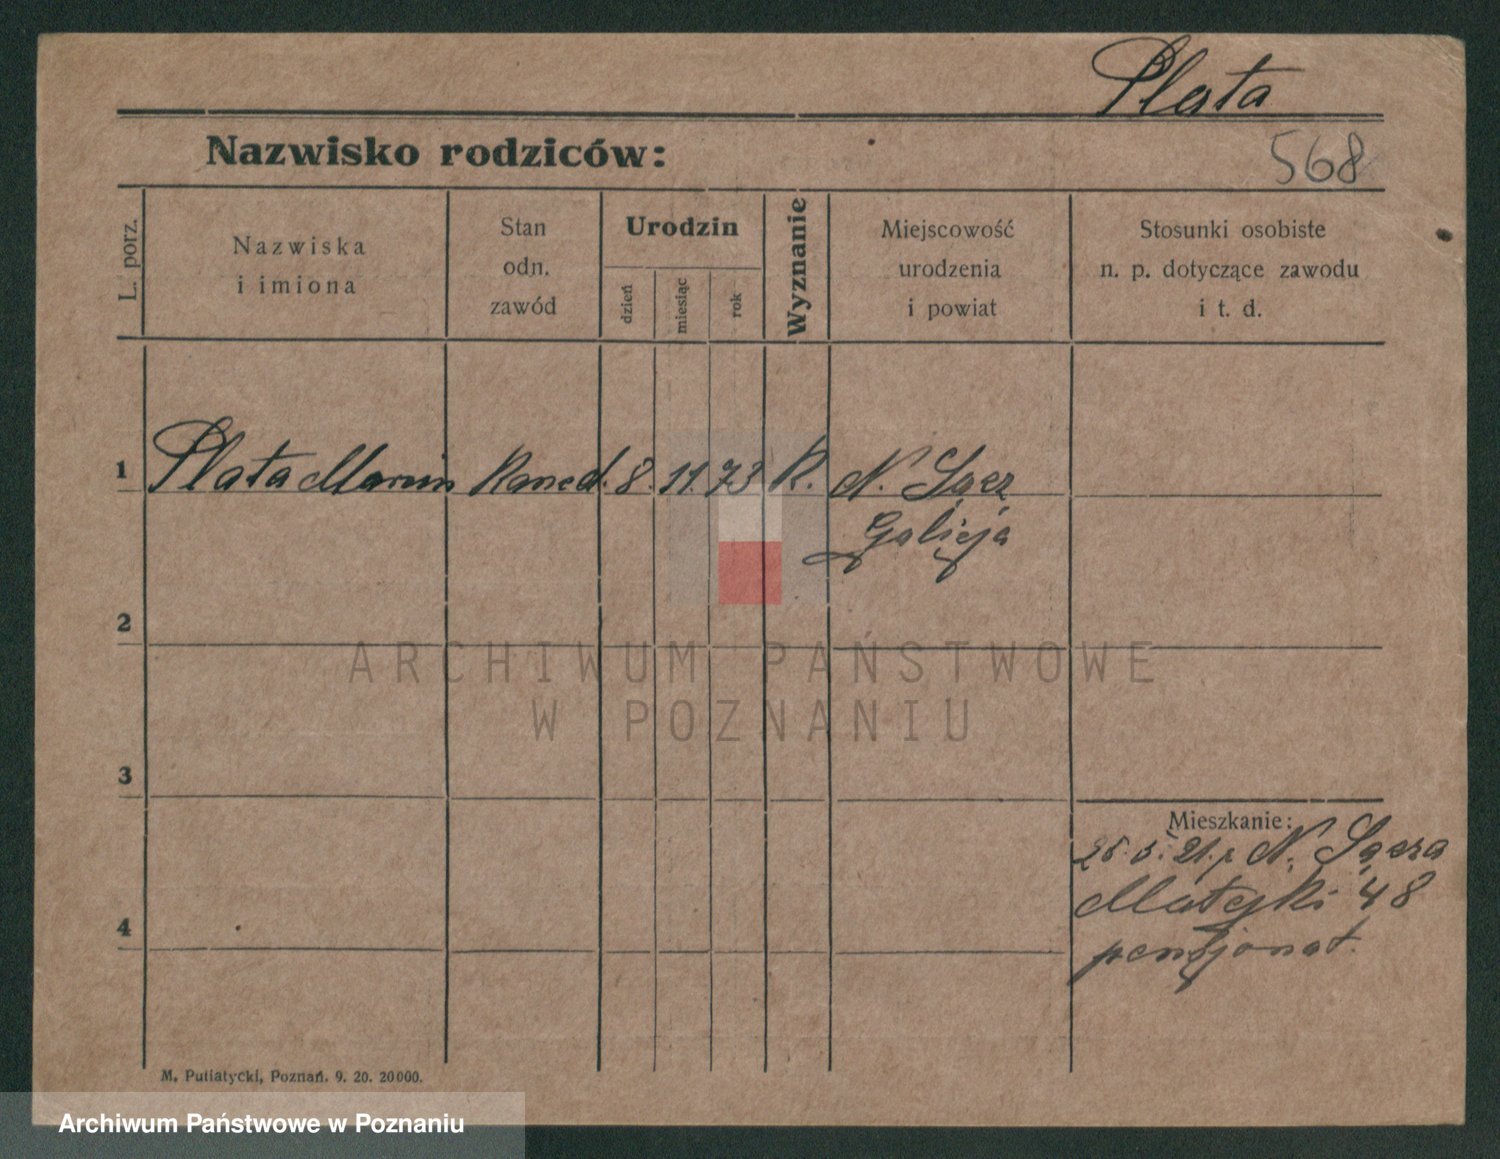 Plata
Nazwisko rodziców:
568
L. porz.
Nazwiska
i imiona
Stan
odn.
zawód
Urodzin
dzień
miesiąc
rok
Wyznanie
Miejscowość
urodzenia
i powiat
Stosunki osobiste
n. p. dotyczące zawodu
i t. d.
1 Plata Marcin 8. 11. 73 R. N. Sącz
Galicja
2
ARCHIWUM PAŃSTWOWE
W POZNANIU
3
Mieszkanie:
5. 21. N. Sącza
Matejki 48
pensjonat.
4
M. Putiatycki, Poznań. 9. 20. 20000.
Archiwum Państwowe w Poznaniu